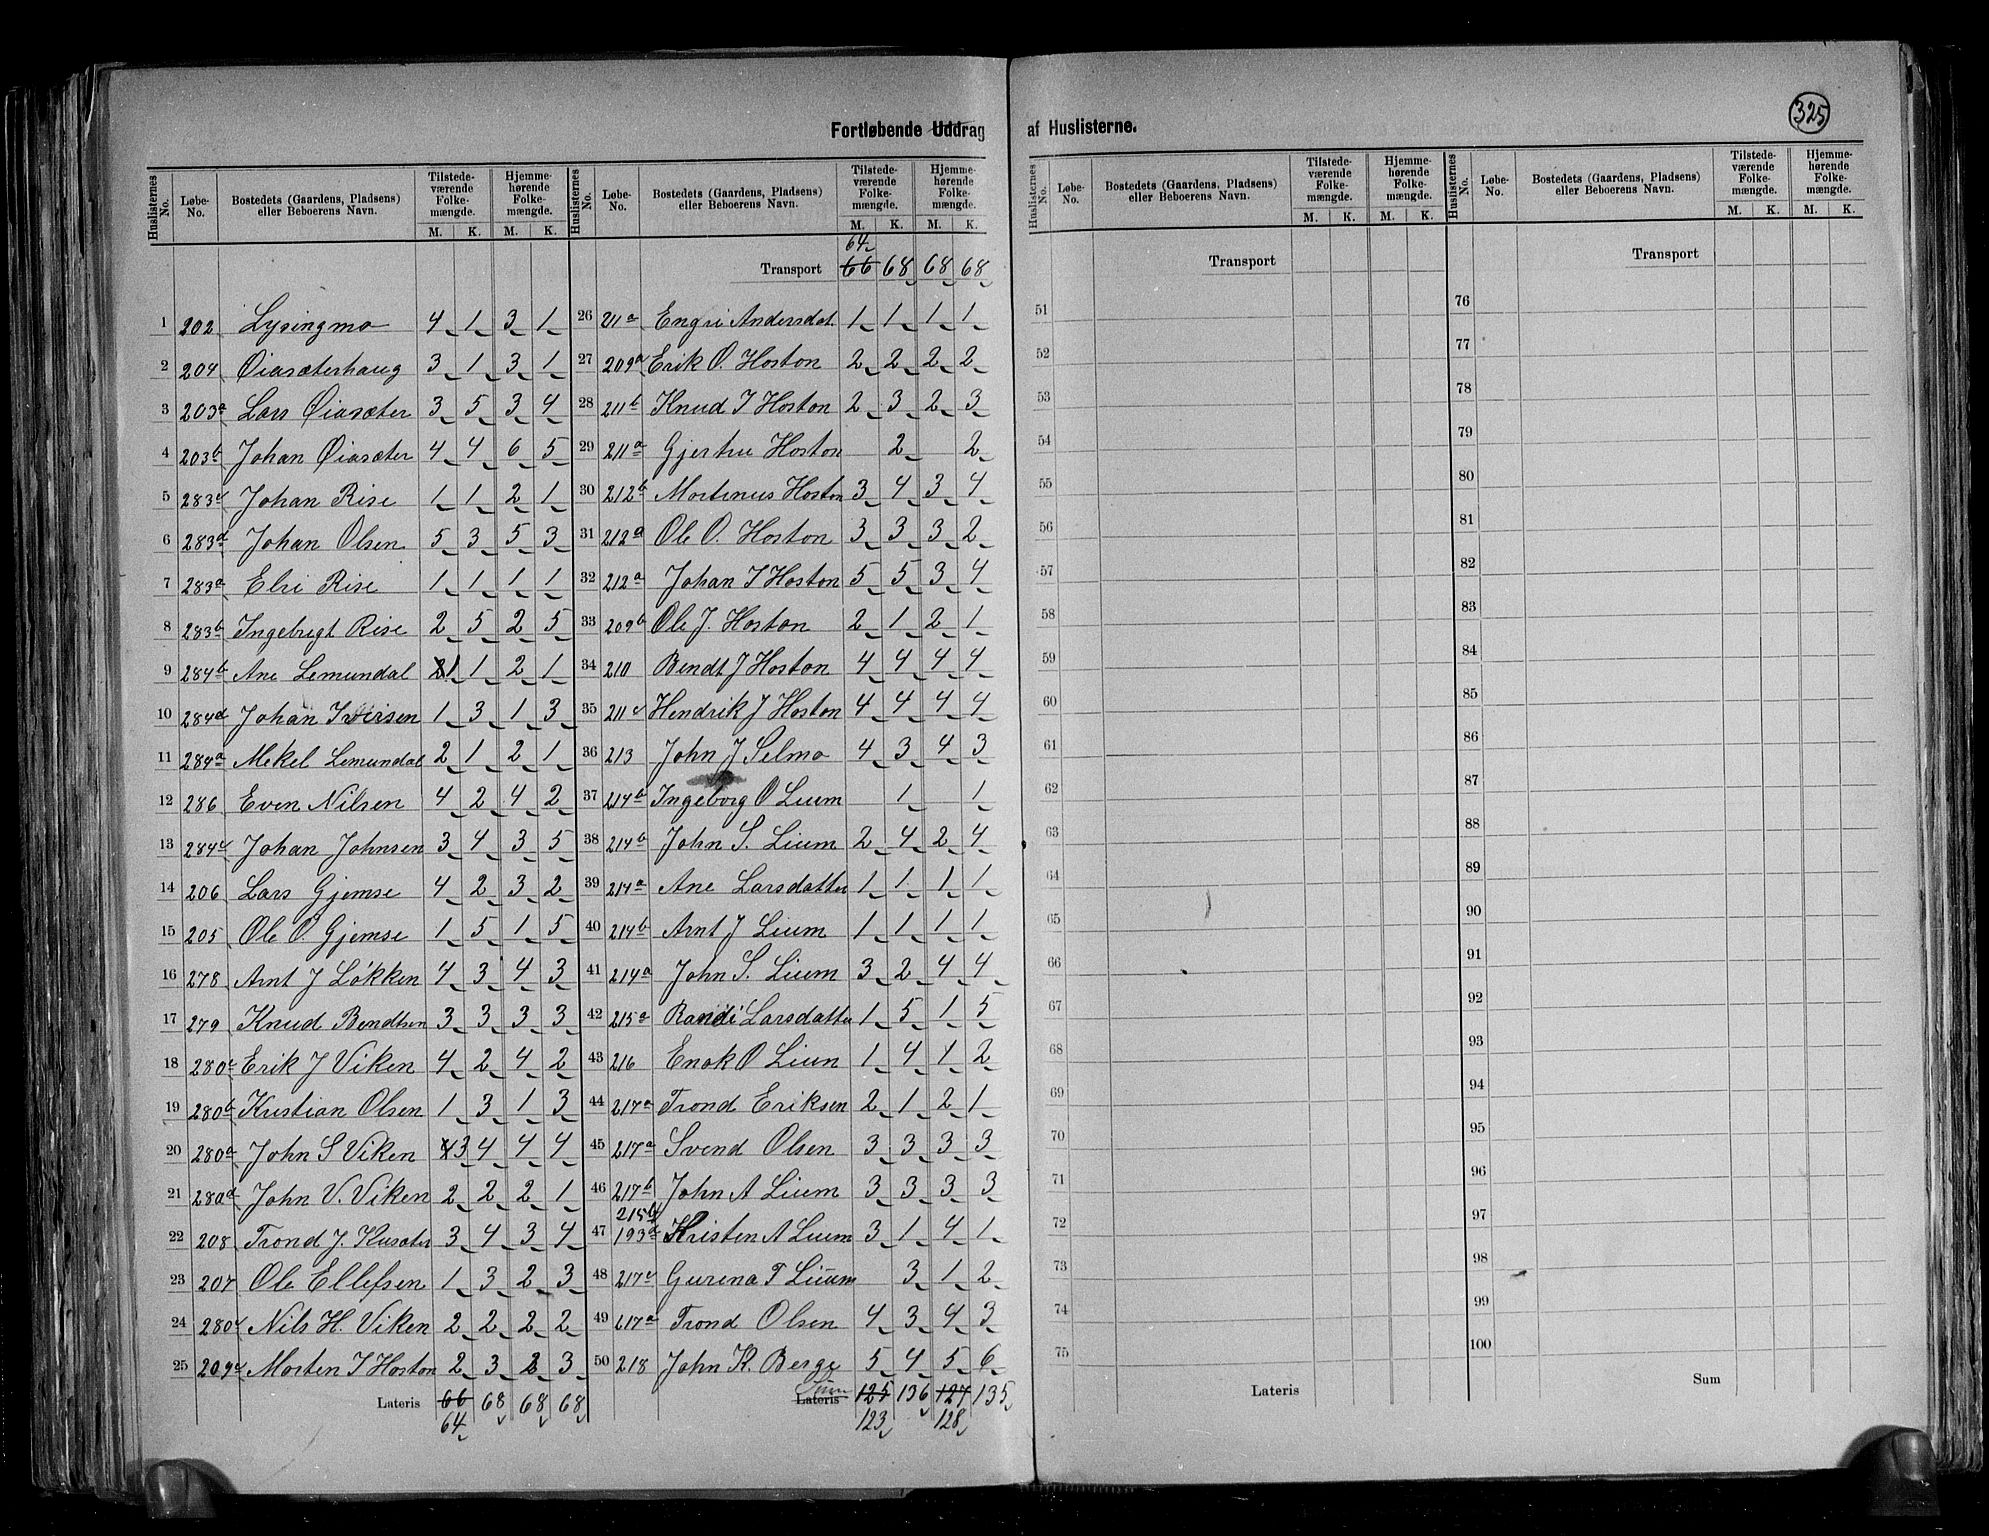 Fortløbende Uddrag af Huslisterne.
325
Huslisternes No. | Løbe-No. | Bostedets (Gaardens, Pladsens) eller Beboerens Navn. | Tilstedeværende Folkemængde. M. K. | Hjemmehørende Folkemængde. M. K.
1 202 Lysingmo 4 1 3 1
2 204 Øiasæterhaug 3 1 3 1
3 203a Lars Øiasæter 3 5 3 4
4 203b Johan Øiasæter 4 4 6 5
5 283c Johan Rise 1 1 2 1
6 283d Johan Olsen 5 3 5 3
7 283a Elsi Rise 1 1 1 1
8 283b Ingebrigt Rise 2 5 2 5
9 284b Ane Lemundal 2 1 1 2 1
10 284d Johan Iversen 1 3 1 3
11 284a Mekel Lemundal 2 1 2 1
12 286 Even Nilsen 4 2 4 2
13 284c Johan Johnsen 3 4 3 5
14 206 Lars Gjemse 4 2 3 2
15 205 Ole O. Gjemse 1 5 1 5
16 278 Arnt J Løkken 4 3 4 3
17 279 Knud Bendtsen 3 3 3 3
18 280c Erik J Viken 4 2 4 2
19 280b Kristian Olsen 1 3 1 3
20 280a John S Viken 4 3 4 4 4
21 280d John V. Viken 2 2 2 1
22 208 Trond J. Kusæter 3 4 3 4
23 207 Ole Ellefsen 1 3 2 3
24 280c Nils H. Viken 2 2 2 2
25 209c Morten I Hoston 2 3 2 3
Lateris 66 68 68 68
64
Huslisternes No. | Løbe-No. | Bostedets (Gaardens, Pladsens) eller Beboerens Navn. | Tilstedeværende Folkemængde. M. K. | Hjemmehørende Folkemængde. M. K.
64
Transport 66 68 68 68
26 211a Engri Andersdat. 1 1 1 1
27 209a Erik O. Hoston 2 2 2 2
28 211b Knud I Hoston 2 3 2 3
29 211a Gjertru Hoston 2 2
30 212b Mortinus Hoston 3 4 3 4
31 212a Ole O. Hoston 3 3 3 2
32 212a Johan I Hoston 5 5 3 4
33 209b Ole J. Hoston 2 1 2 1
34 210 Bendt J Hoston 4 4 4 4
35 211c Hendrik J Hoston 4 4 4 4
36 213 John J Selmo 4 3 4 3
37 214b Ingeborg O Lium 1 1
38 214b John S. Lium 2 4 2 4
39 214a Ane Larsdatter 1 1 1 1
40 214b Arnt J Lium 1 1 1 1
41 214a John S. Lium 3 2 4 4
42 215a Randi Larsdatter 1 5 1 5
43 216 Enok O Lium 1 4 1 2
44 217a Trond Eriksen 2 1 2 1
45 217a Svend Olsen 3 3 3 3
46 217b John A Lium 3 3 3 3
215b
47 193d Kristen A Lium 3 1 4 1
48 217c Gurena T Lium 3 1 2
49 617a Trond Olsen 4 3 4 3
50 218 John K. Berge 5 4 5 6
Sum
Lateris 125 136 127 135
123 128
Huslisternes No. | Løbe-No. | Bostedets (Gaardens, Pladsens) eller Beboerens Navn. | Tilstedeværende Folkemængde. M. K. | Hjemmehørende Folkemængde. M. K.
Transport
51
52
53
54
55
56
57
58
59
60
61
62
63
64
65
66
67
68
69
70
71
72
73
74
75
Lateris
Huslisternes No. | Løbe-No. | Bostedets (Gaardens, Pladsens) eller Beboerens Navn. | Tilstedeværende Folkemængde. M. K. | Hjemmehørende Folkemængde. M. K.
Transport
76
77
78
79
80
81
82
83
84
85
86
87
88
89
90
91
92
93
94
95
96
97
98
99
100
Sum